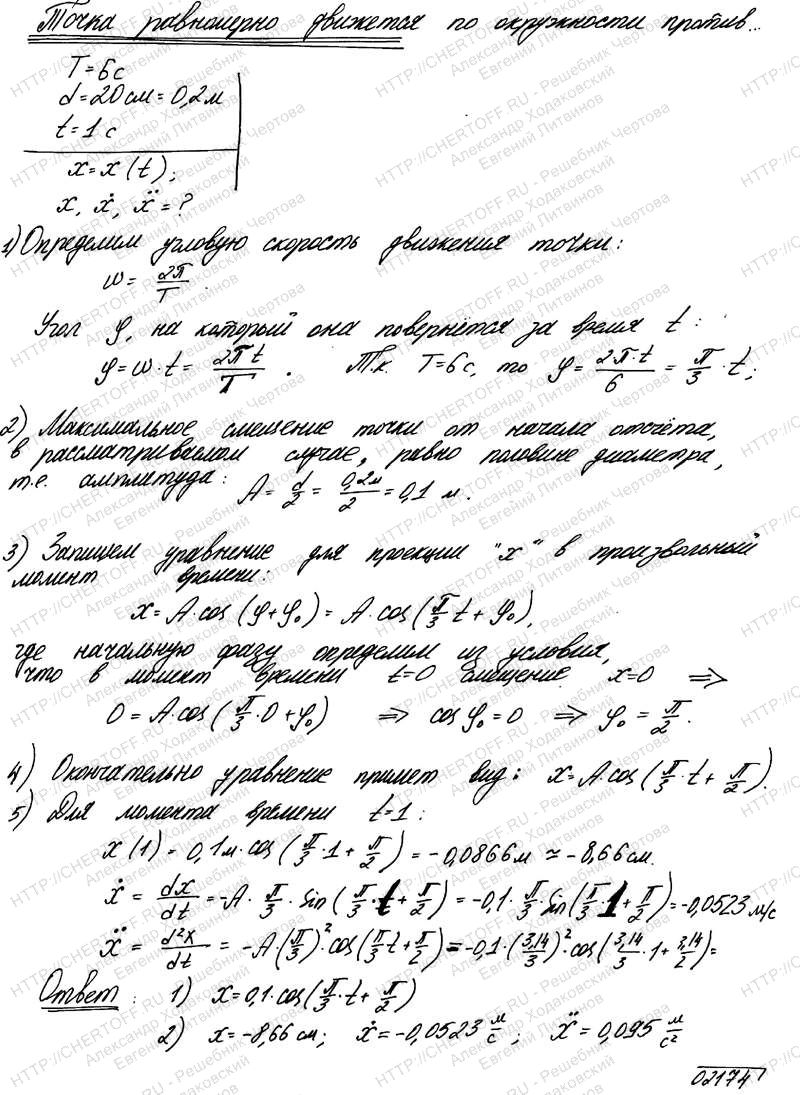 Точка равномерно движется по окружности против...
T=6с
d=20см=0,2м
t=1с
x=x(t);
x, ẋ, ẍ=?
1) Определим угловую скорость движения точки:
ω = 2π/T
Угол φ, на который она повернётся за время t:
φ=ω·t= 2πt/T. Т.к. T=6с, то φ= 2π·t/6 = π/3·t;
2) Максимальное смещение точки от начала отсчёта,
в рассматриваемом случае, равно половине диаметра,
т.е. амплитуда: A= d/2 = 0,2м/2 =0,1 м.
3) Запишем уравнение для проекции "x" в произвольный
момент времени:
x=A·cos(φ+φ₀)=A·cos(π/3 t+φ₀),
где начальную фазу определим из условия,
что в момент времени t=0 смещение x=0 ⇒
0=A·cos(π/3·0+φ₀) ⇒ cosφ₀=0 ⇒ φ₀=π/2.
4) Окончательно уравнение примет вид: x=A·cos(π/3·t+π/2).
5) Для момента времени t=1:
x(1)=0,1м·cos(π/3·1+π/2)=-0,0866м≈-8,66см.
ẋ = dx/dt =-A·π/3·sin(π/3·t+π/2)=-0,1·π/3·sin(π/3·1+π/2)=-0,0523 м/с
ẍ = d²x/dt = -A·(π/3)²·cos(π/3t+π/2)=-0,1·(3,14/3)²·cos(3,14/3·1+3,14/2)=
Ответ: 1) x=0,1·cos(π/3·t+π/2)
2) x=-8,66 см; ẋ=-0,0523 м/с; ẍ=0,095 м/с²
02174
HTTP://CHERTOFF.RU - Решебник Чертова
Александр Ходаковский
Евгений Литвинов